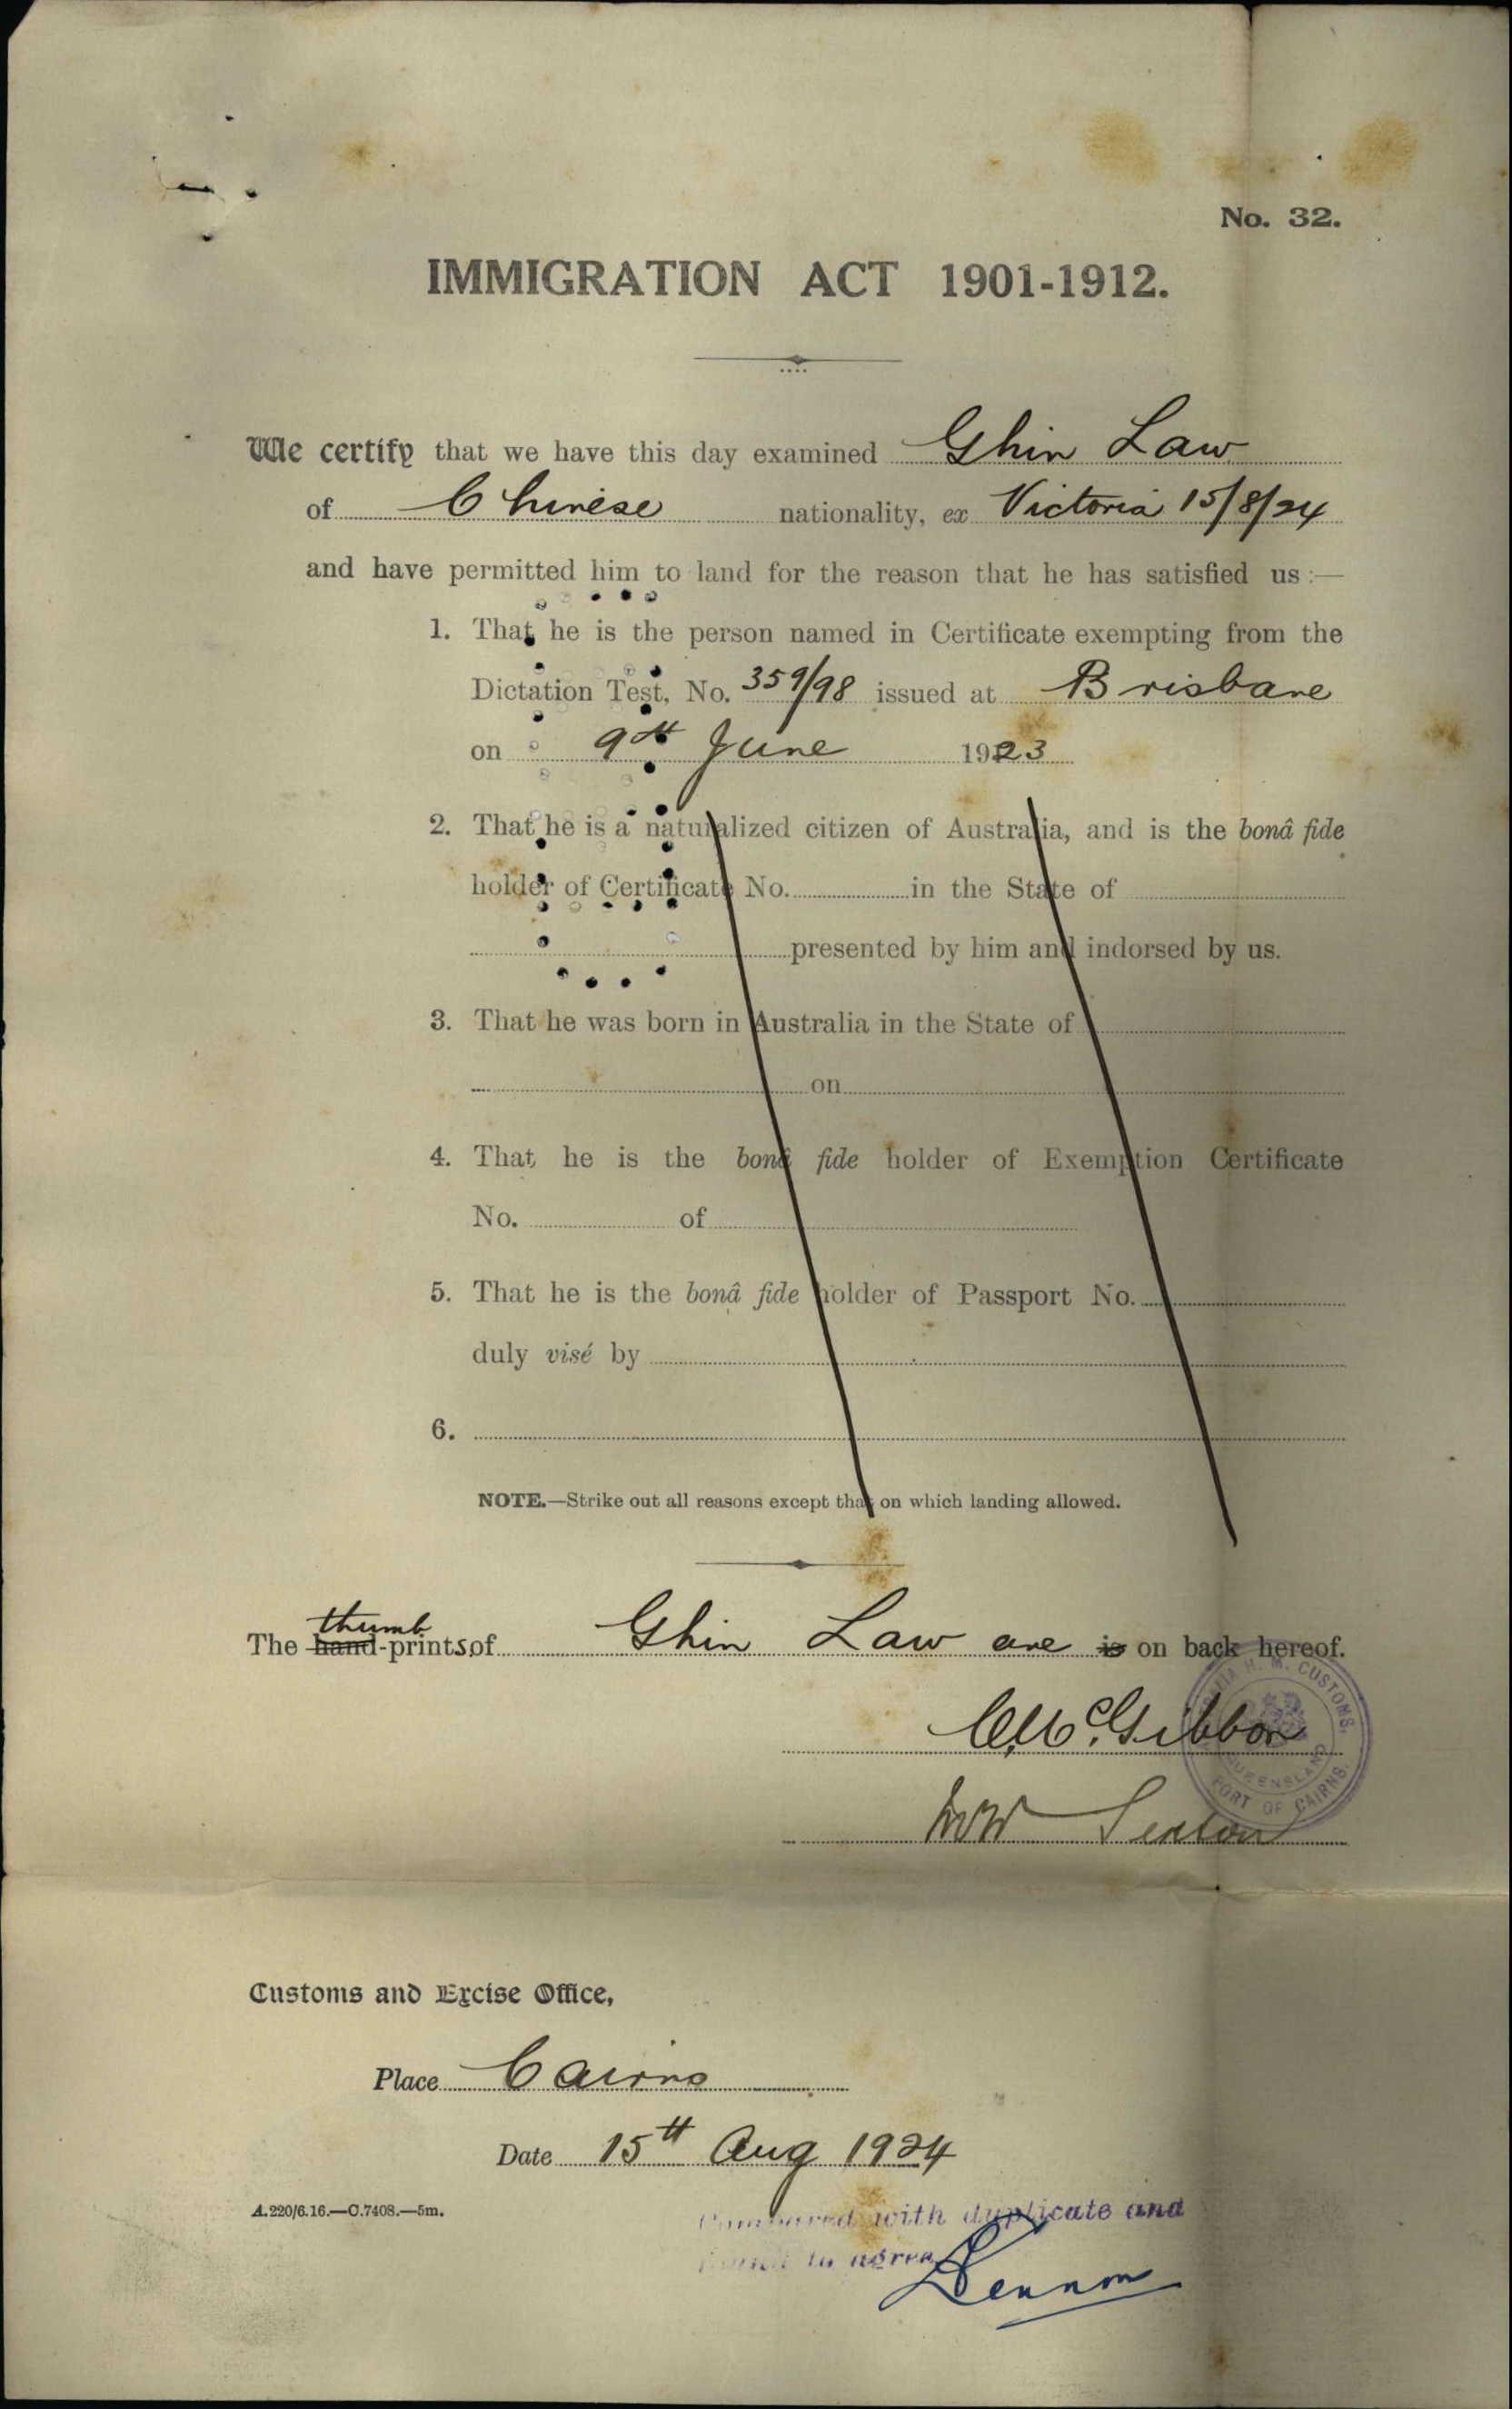 No. 32.
IMMIGRATION ACT 1901-1912.
We certify that we have this day examined Ghin Law
of Chinese nationality, ex Victoria 15/8/24
and have permitted him to land for the reason that he has satisfied us :—
1. That he is the person named in Certificate exempting from the
Dictation Test, No. 359/98 issued at Brisbane
on 9th June 1923
2. That he is a naturalized citizen of Australia, and is the bonâ fide
holder of Certificate No. in the State of
presented by him and indorsed by us.
3. That he was born in Australia in the State of
on
4. That he is the bonâ fide holder of Exemption Certificate
No. of
5. That he is the bonâ fide holder of Passport No.
duly visé by
6.
NOTE.—Strike out all reasons except that on which landing allowed.
thumb
The hand-prints of Ghin Law are is on back hereof.
H. M. CUSTOMS.
QUEENSLAND
PORT OF CAIRNS.
C. McGibbon
Customs and Excise Office,
Place Cairns
Date 15th Aug 1924
A.220/6.16.—C.7408.—5m.
Compared with duplicate and
found to agree
Lennon